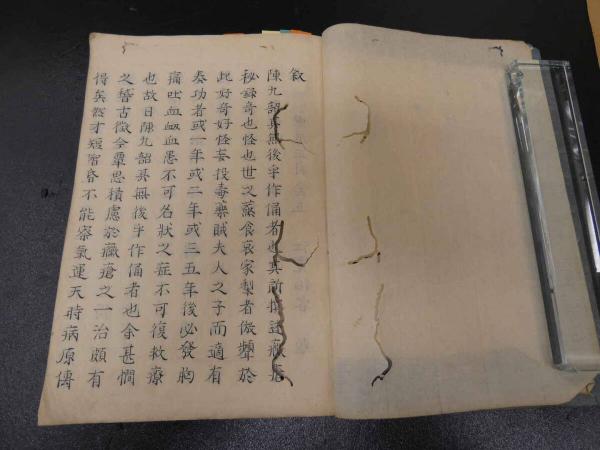 敘
陳九韶其無後乎作俑者也其所撰述癥瘡
秘錄奇也怪也世之蔬食裹家製者倣顰於
此好奇好怪妄投毒藥賊夫人之子而適有
奏功者或一年或二年或三五年後必發胸
痛吐血衄血愚不可名狀之症不可復救療
也故曰陳九韶其無後乎作俑者也余甚憫
之稽古徵今覃思積慮於癥瘡之一治頗有
得矣然才短智昏不能察氣運天時病原傳